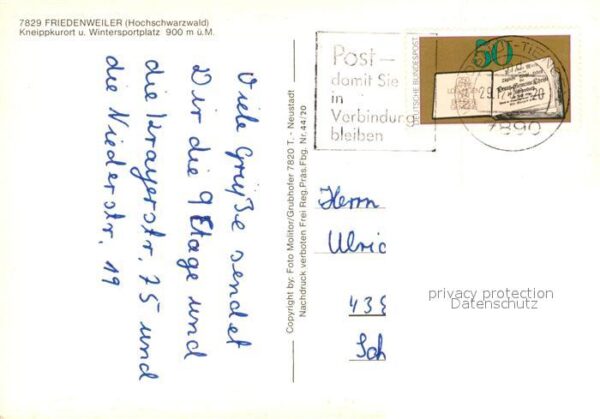 7829 FRIEDENWEILER (Hochschwarzwald)
Kneippkurort u. Wintersportplatz 900 m ü.M.
Viele Grüße sendet
Dir die 9 Etage und
die Krayerstr. 75 und
die Niederstr. 19
Copyright by: Foto Molitor/Grubhofer 7820 T. - Neustadt
Nachdruck verboten Frei Reg.Präs.Fbg. Nr.44/20
Post–
damit Sie
in
Verbindung
bleiben
50
DEUTSCHE BUNDESPOST
7890
Herrn
Ulric
435
Sch
privacy protection
Datenschutz